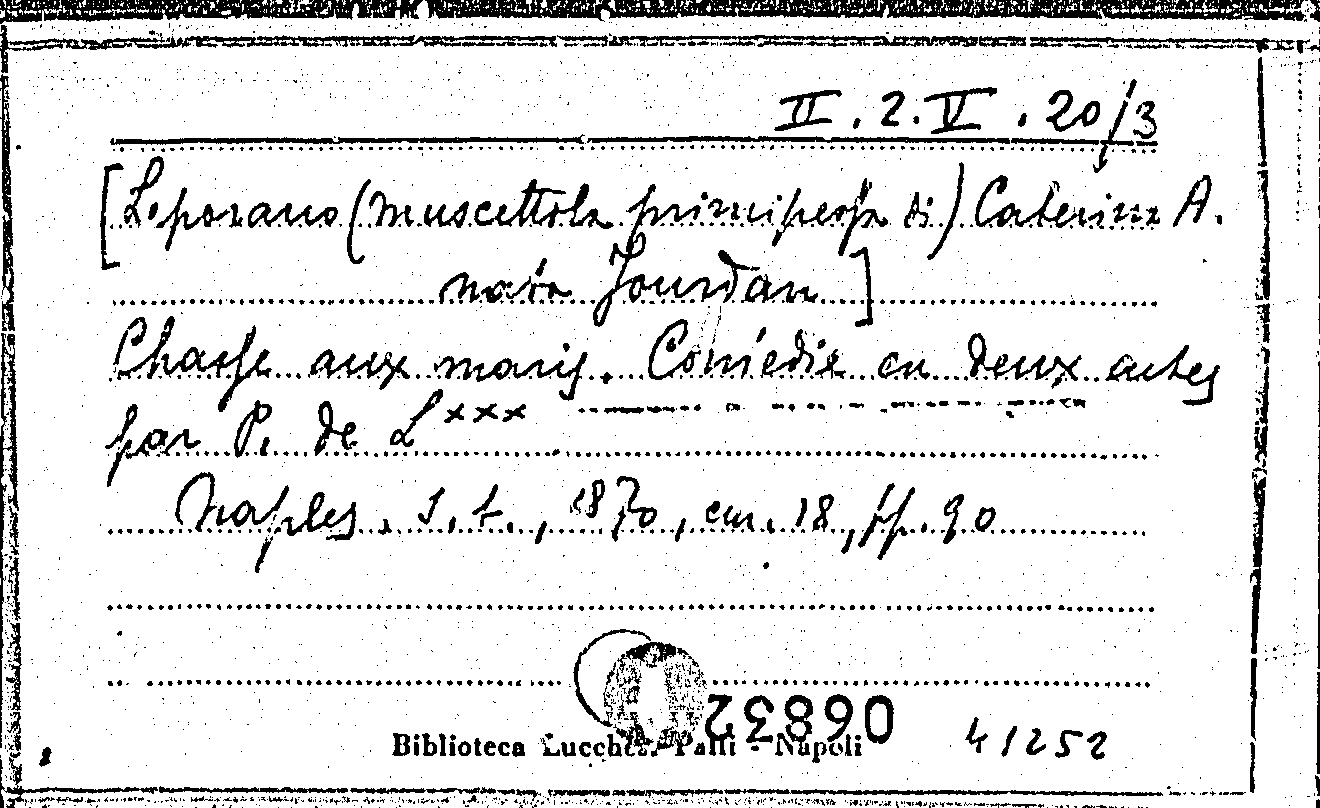 II.2.V.20/3
[Leporano (Muscettola principessa di) Caterina A.
nata Jourdan]
Chasse aux maris. Comédie en deux actes
par P. de L***
Naples, s.t., 1870, cm. 18, pp. 90
06832
Biblioteca Lucchesi Palli - Napoli
41252